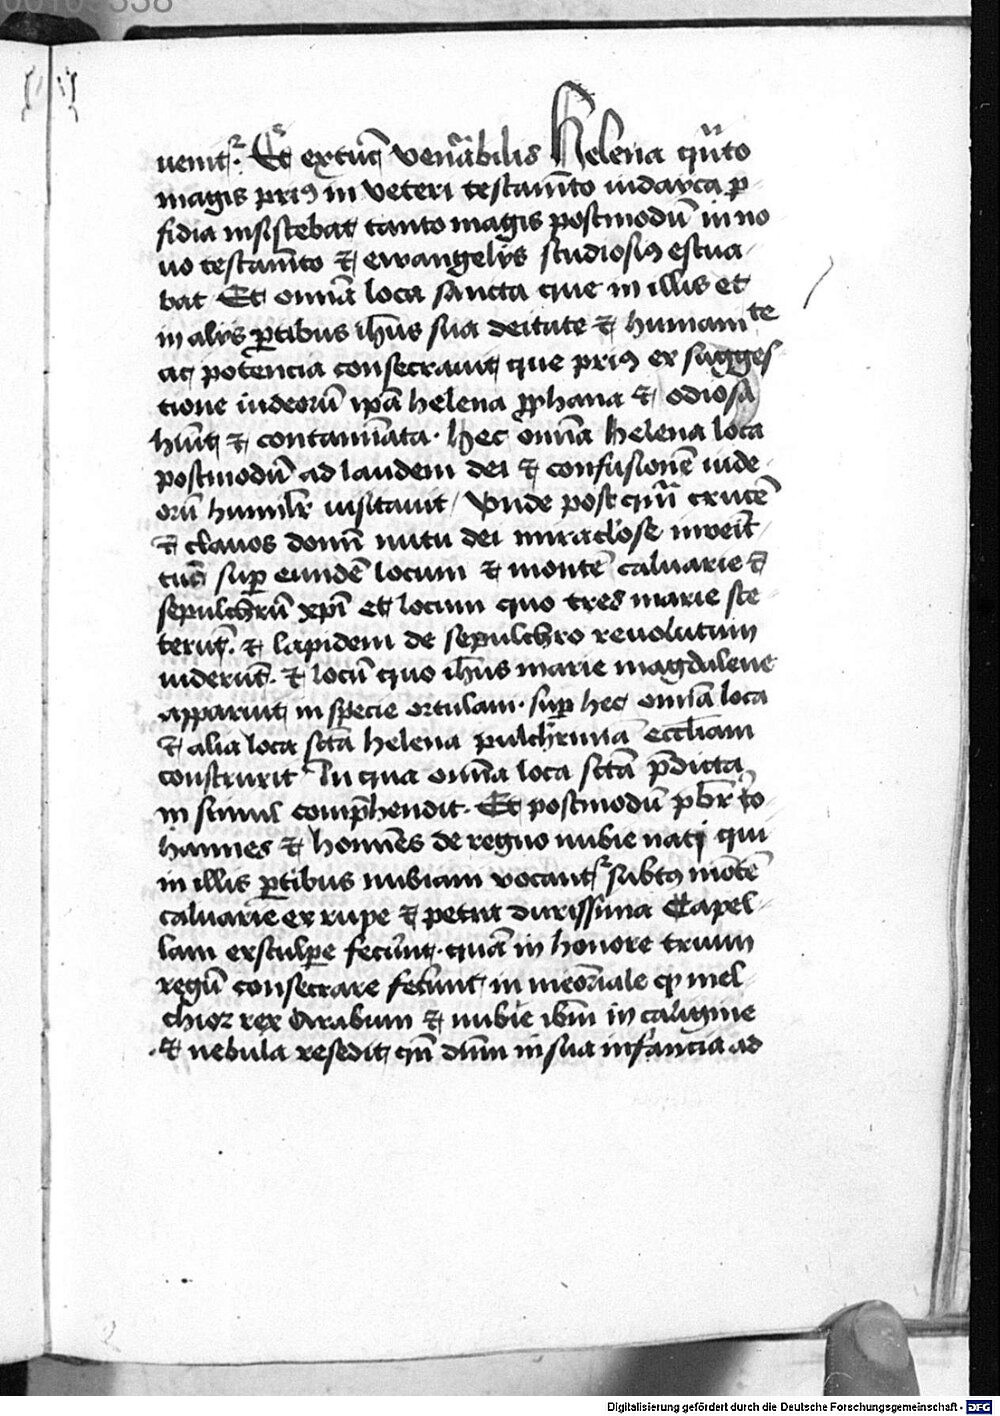 00109338
uenit᷑. Et extūc venᷓabilis Helena qͥnto
magis priꝰ in veteri testam̅to iudayca ꝑ
fidia insistebat tanto magis postmodū in no
uo testam̅to ⁊ ewangelijs studiosiꝰ estua
bat Et om̅ia loca sancta que in illis et
in alijs ꝑtibus ih̅us sua deitate ⁊ humanite
ac potencia consecrauit que priꝰ ex sugges
tione iudeorū ip̅a helena ꝓphana ⁊ odiosa
hūit ⁊ contamīata. hec om̅ia helena loca
postmodū ad laudem dei ⁊ confusionē iude
orū humilr̅ visitauit / Vnde postqm̅ crucē
⁊ clauos domī nutu dei miraclose inuēit
tūc suꝑ eundē locum ⁊ montē caluarie ⁊
sepulchrū xp̅i et locum quo tres marie ste
terūt. ⁊ lapidem de sepulchro reuolutum
viderūt. ⁊ locū quo ih̅us marie magdalene
apparuit in specie ortulani. suꝑ hec om̅ia loca
⁊ alia loca sc̅ta helena pulcherrimā eccl̅iam
construxit In qua om̅ia loca sc̅ta p̅dicta
in simul comp̅hendit. Et postmodū pbr̅ io
hannes ⁊ hom̅es de regno nubie nati qui
in illis ꝑtibus nubiani vocant᷑ subtꝰ mōtē
caluarie ex rupe ⁊ petra durissima Capel
lam exsculꝑe fecerūt. quā in honore trium
regū consecrare fecerūt in memo̅riale ꝙ mel
chior rex Arabum ⁊ nubie ibm̅ in caligine
⁊ nebula resedit qn̅ dn̅m in sua infancia ad
Digitalisierung gefördert durch die Deutsche Forschungsgemeinschaft - DFG